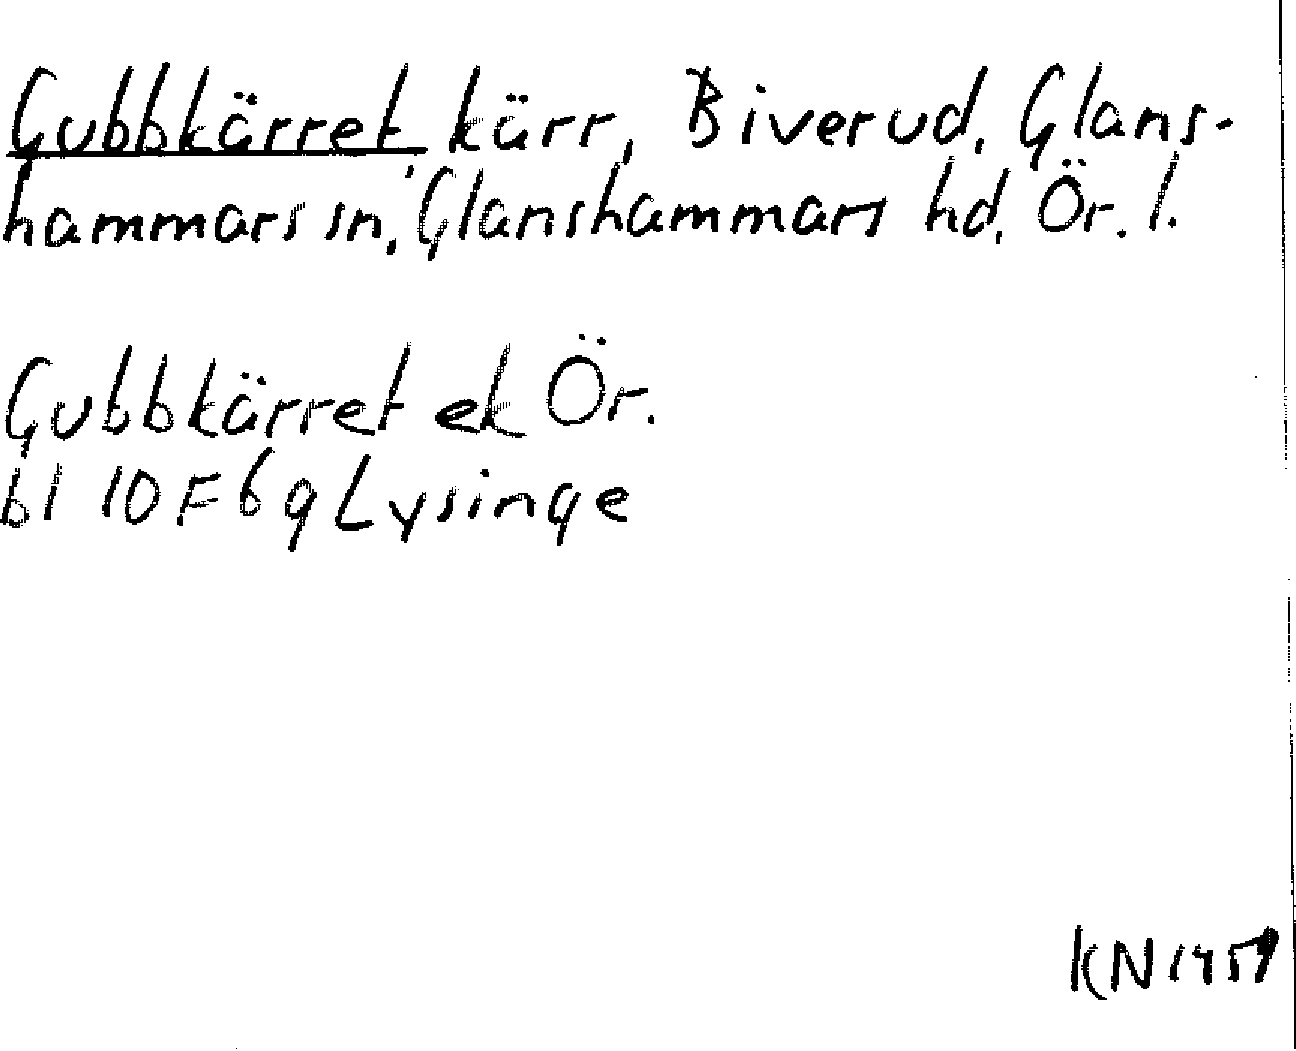 Gubbkärret kärr, Biverud, Glans-
hammars sn, Glanshammars hd, Ör. l.
Gubbkärret ek Ör.
bl 10 F 6 g Lysinge
KN